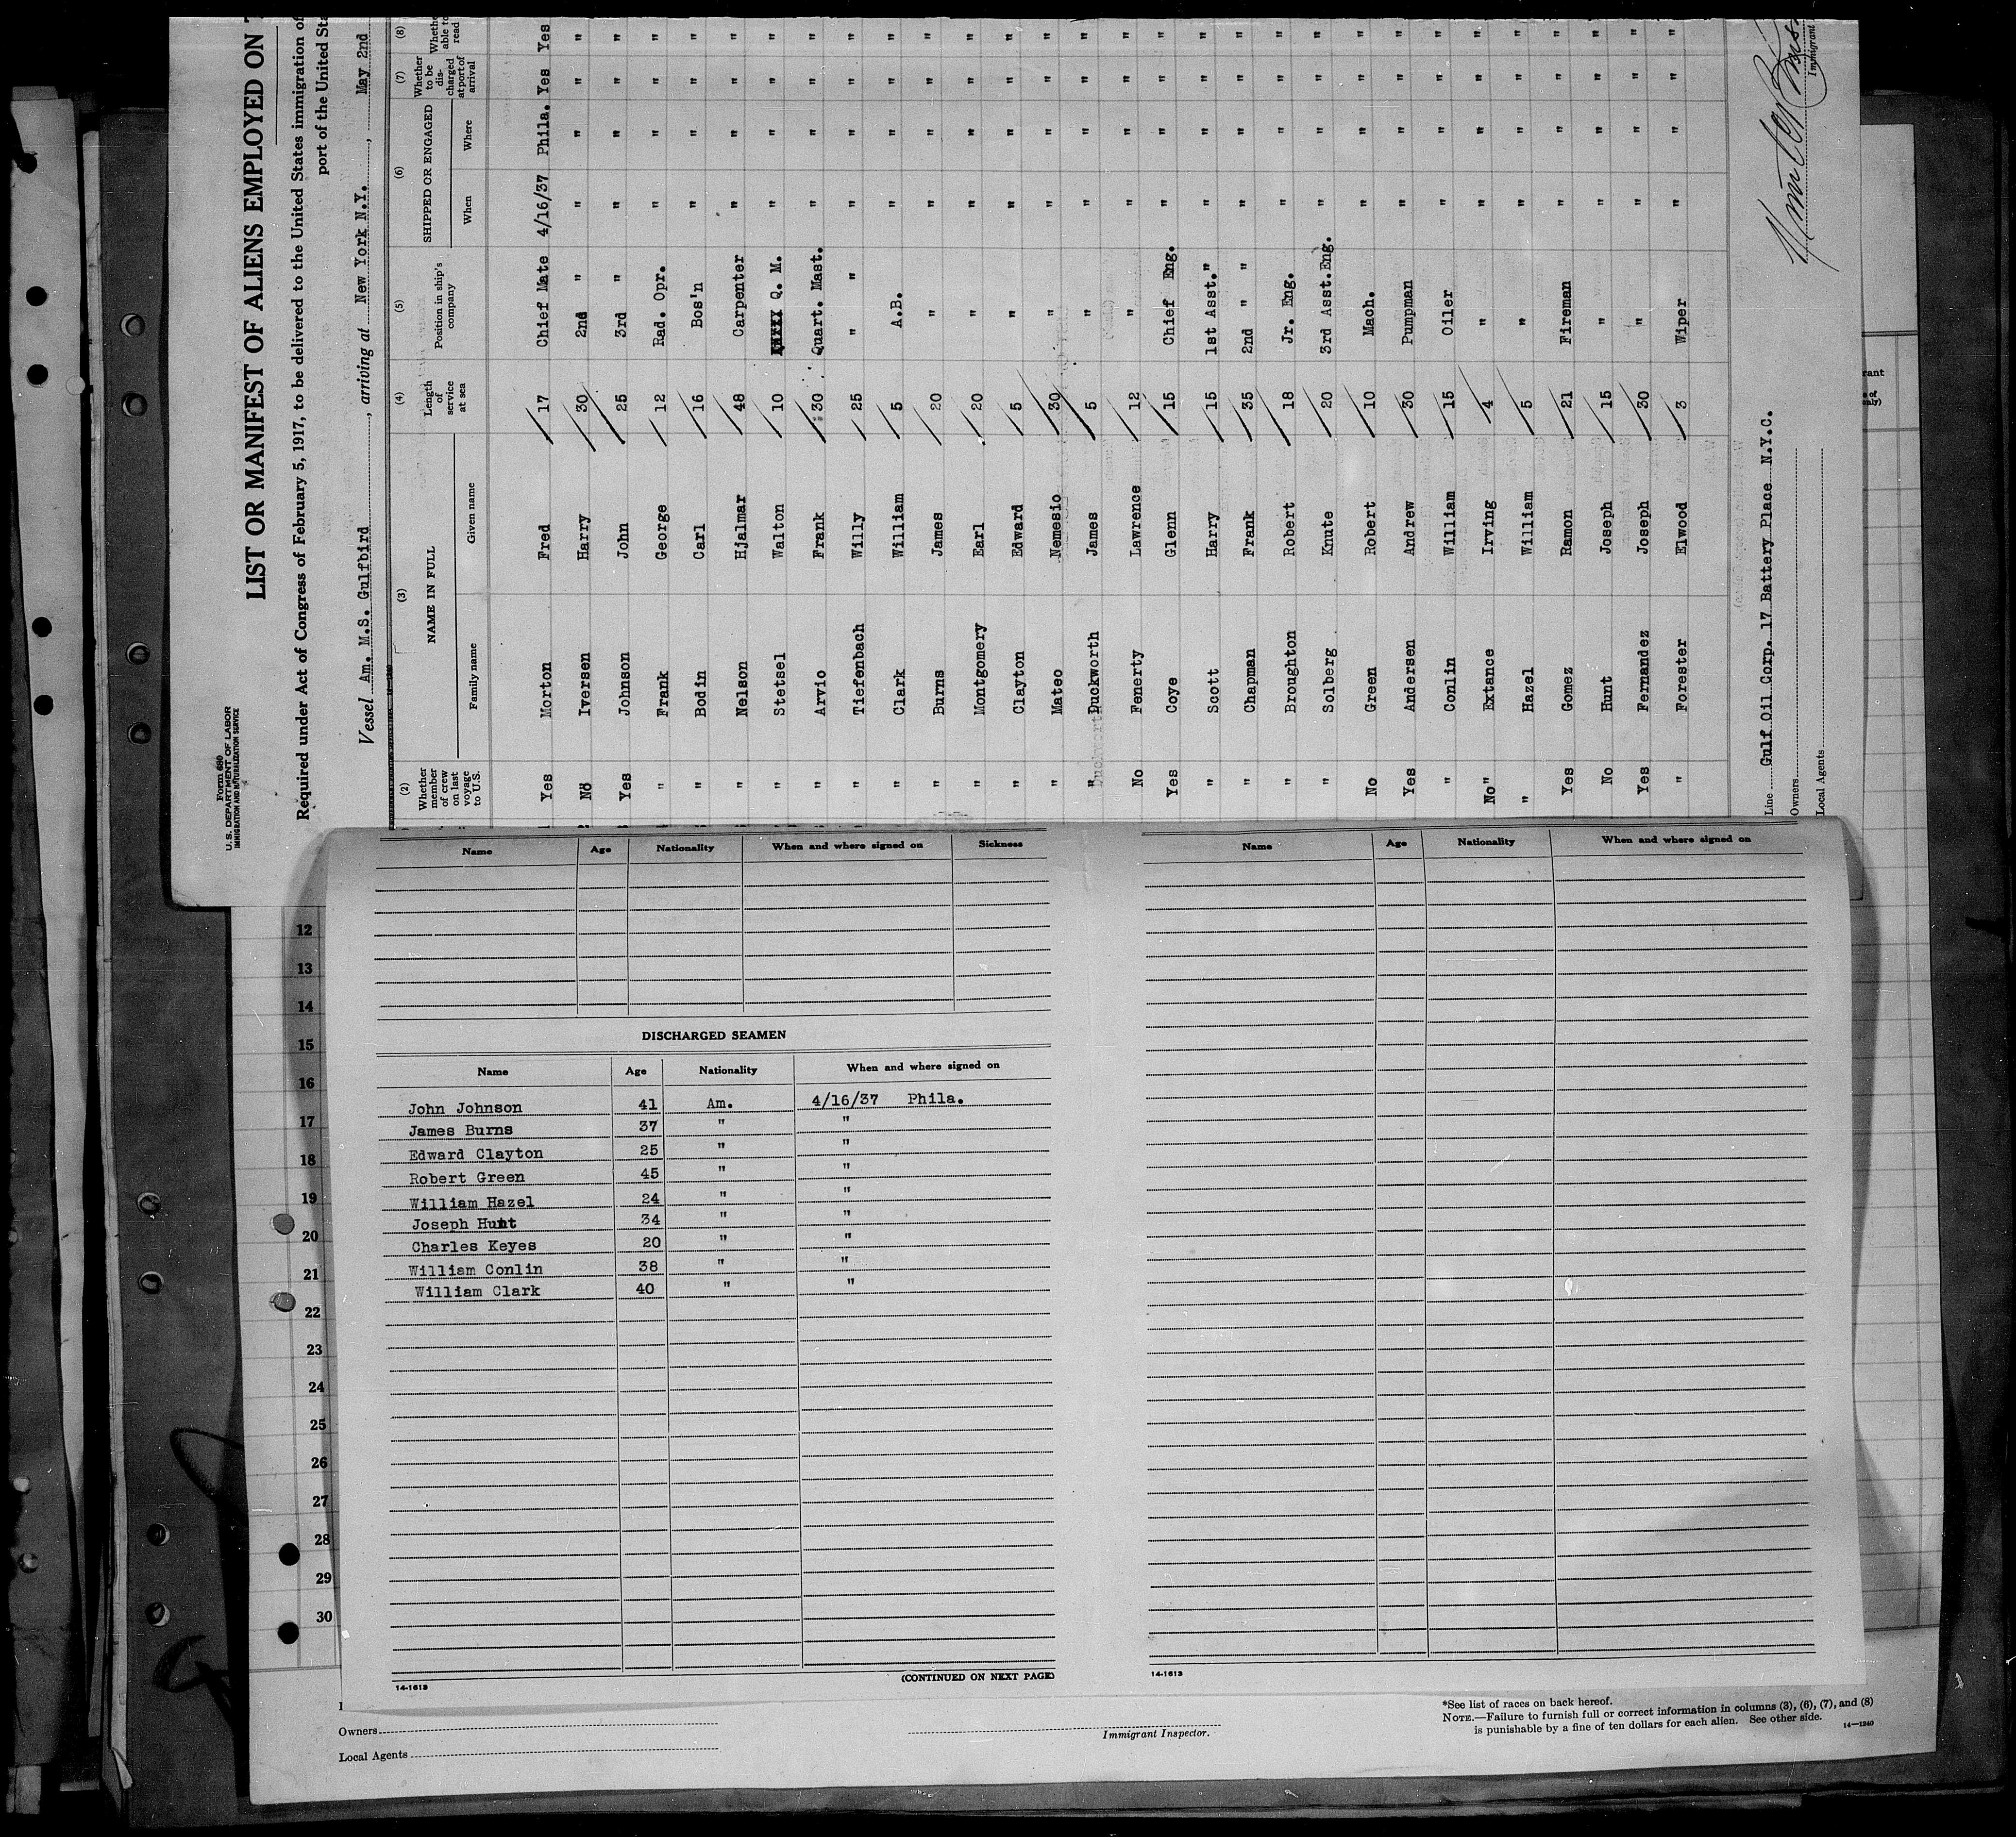 Form 680
U. S. DEPARTMENT OF LABOR
IMMIGRATION AND NATURALIZATION SERVICE
LIST OR MANIFEST OF ALIENS EMPLOYED ON
Required under Act of Congress of February 5, 1917, to be delivered to the United States immigration of
port of the United Sta
Vessel Am. M.S. Gulfbird, arriving at New York N.Y., May 2nd
(2) (3) (4) (5) (6) (7) (8)
Whether member of crew on last voyage to U.S. NAME IN FULL Family name Given name Length of service at sea Position in ship's company SHIPPED OR ENGAGED When Where Whether to be discharged at port of arrival Whether able to read
Yes Morton Fred 17 Chief Mate 4/16/37 Phila. Yes Yes
No Iversen Harry 30 2nd " " " " "
Yes Johnson John 25 3rd " " " " "
" Frank George 12 Rad. Opr. " " " "
" Bodin Carl 16 Bos'n " " " "
" Nelson Hjalmar 48 Carpenter " " " "
" Stetsel Walton 10 Q. M. " " " "
" Arvio Frank 30 Quart. Mast. " " " "
" Tiefenbach Willy 25 " " " " " "
" Clark William 5 A.B. " " " "
" Burns James 20 " " " " "
" Montgomery Earl 20 " " " " "
" Clayton Edward 5 " " " " "
" Mateo Nemesio 30 " " " " "
" Duckworth James 5 " " " " "
No Fenerty Lawrence 12 " " " " "
Yes Coye Glenn 15 Chief Eng. " " " "
" Scott Harry 15 1st Asst." " " " "
" Chapman Frank 35 2nd " " " " " "
" Broughton Robert 18 Jr. Eng. " " " "
" Solberg Knute 20 3rd Asst.Eng. " " " "
No Green Robert 10 Mach. " " " "
Yes Andersen Andrew 30 Pumpman " " " "
" Conlin William 15 Oiler " " " "
No" Extance Irving 4 " " " " "
" Hazel William 5 " " " " "
Yes Gomez Ramon 21 Fireman " " " "
No Hunt Joseph 15 " " " " "
Yes Fernandez Joseph 30 " " " " "
" Forester Elwood 3 Wiper " " " "
Line Gulf Oil Corp. 17 Battery Place N.Y.C.
Owners
Local Agents
Immigrant
Name Age Nationality When and where signed on Sickness
DISCHARGED SEAMEN
Name Age Nationality When and where signed on
John Johnson 41 Am. 4/16/37 Phila.
James Burns 37 " "
Edward Clayton 25 " "
Robert Green 45 " "
William Hazel 24 " "
Joseph Hunt 34 " "
Charles Keyes 20 " "
William Conlin 38 " "
William Clark 40 " "
(CONTINUED ON NEXT PAGE)
14-1613
Name Age Nationality When and where signed on
14-1613
12
13
14
15
16
17
18
19
20
21
22
23
24
25
26
27
28
29
30
Owners
Local Agents
Immigrant Inspector.
*See list of races on back hereof.
NOTE.—Failure to furnish full or correct information in columns (3), (6), (7), and (8)
is punishable by a fine of ten dollars for each alien. See other side.
14—1240